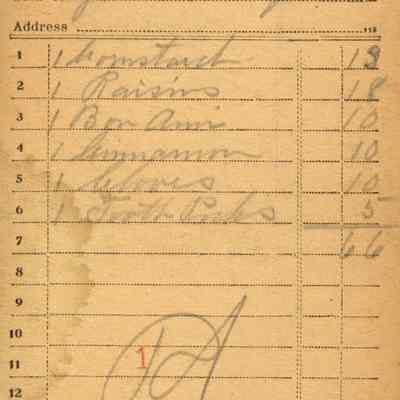 Address 115
1 1 Cornstarch 13
2 1 Raisins 18
3 1 Bon Ami 10
4 1 Cinnamon 10
5 1 Cloves 10
6 1 Tooth Picks 5
7 66
8
9
10
1
11
12